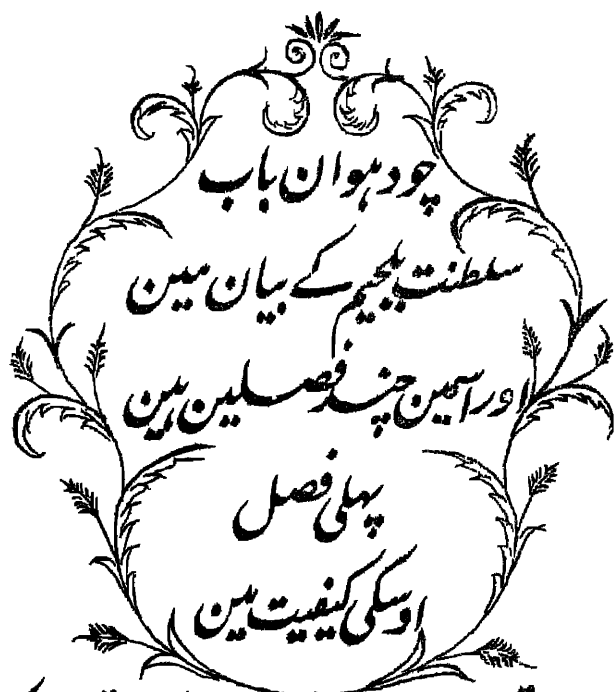 چودہوان باب
سلطنت بلجیم کے بیان مین
اور اسمین چند فصلین ہین
پہلی فصل
اوسکی کیفیت مین